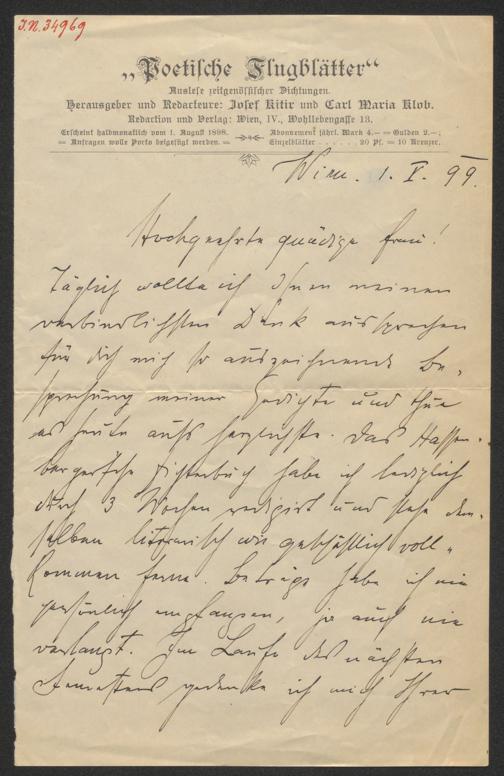 J.N. 34969
„Poetische Flugblätter“
Auslese zeitgenössischer Dichtungen.
Herausgeber und Redacteure: Josef Kitir und Carl Maria Klob.
Redaction und Verlag: Wien, IV., Wohllebengasse 13.
Erscheint halbmonatlich vom 1. August 1898.
= Anfragen wolle Porto beigefügt werden. =
Abonnement jährl. Mark 4.— = Gulden 2.—;
Einzelblätter . . . . . . 20 Pf. = 10 Kreuzer.
Wien. 1. V. 99.
Hochgeehrte gnädige Frau!
Täglich wollte ich Ihnen meinen
verbindlichsten Dank aussprechen
für die mich so auszeichnende Be-
sprechung meiner Gedichte und thue
es heute aufs herzlichste. Das Hassen-
berger'sche Dichterbuch habe ich lediglich
durch 3 Wochen redigirt und stehe dem-
selben literarisch wie geschäftlich voll-
kommen ferne. Beträge habe ich nie
persönlich empfangen, ja auch nie
verlangt. Im Laufe des nächsten
Semesters gedenke ich mich Ihrer